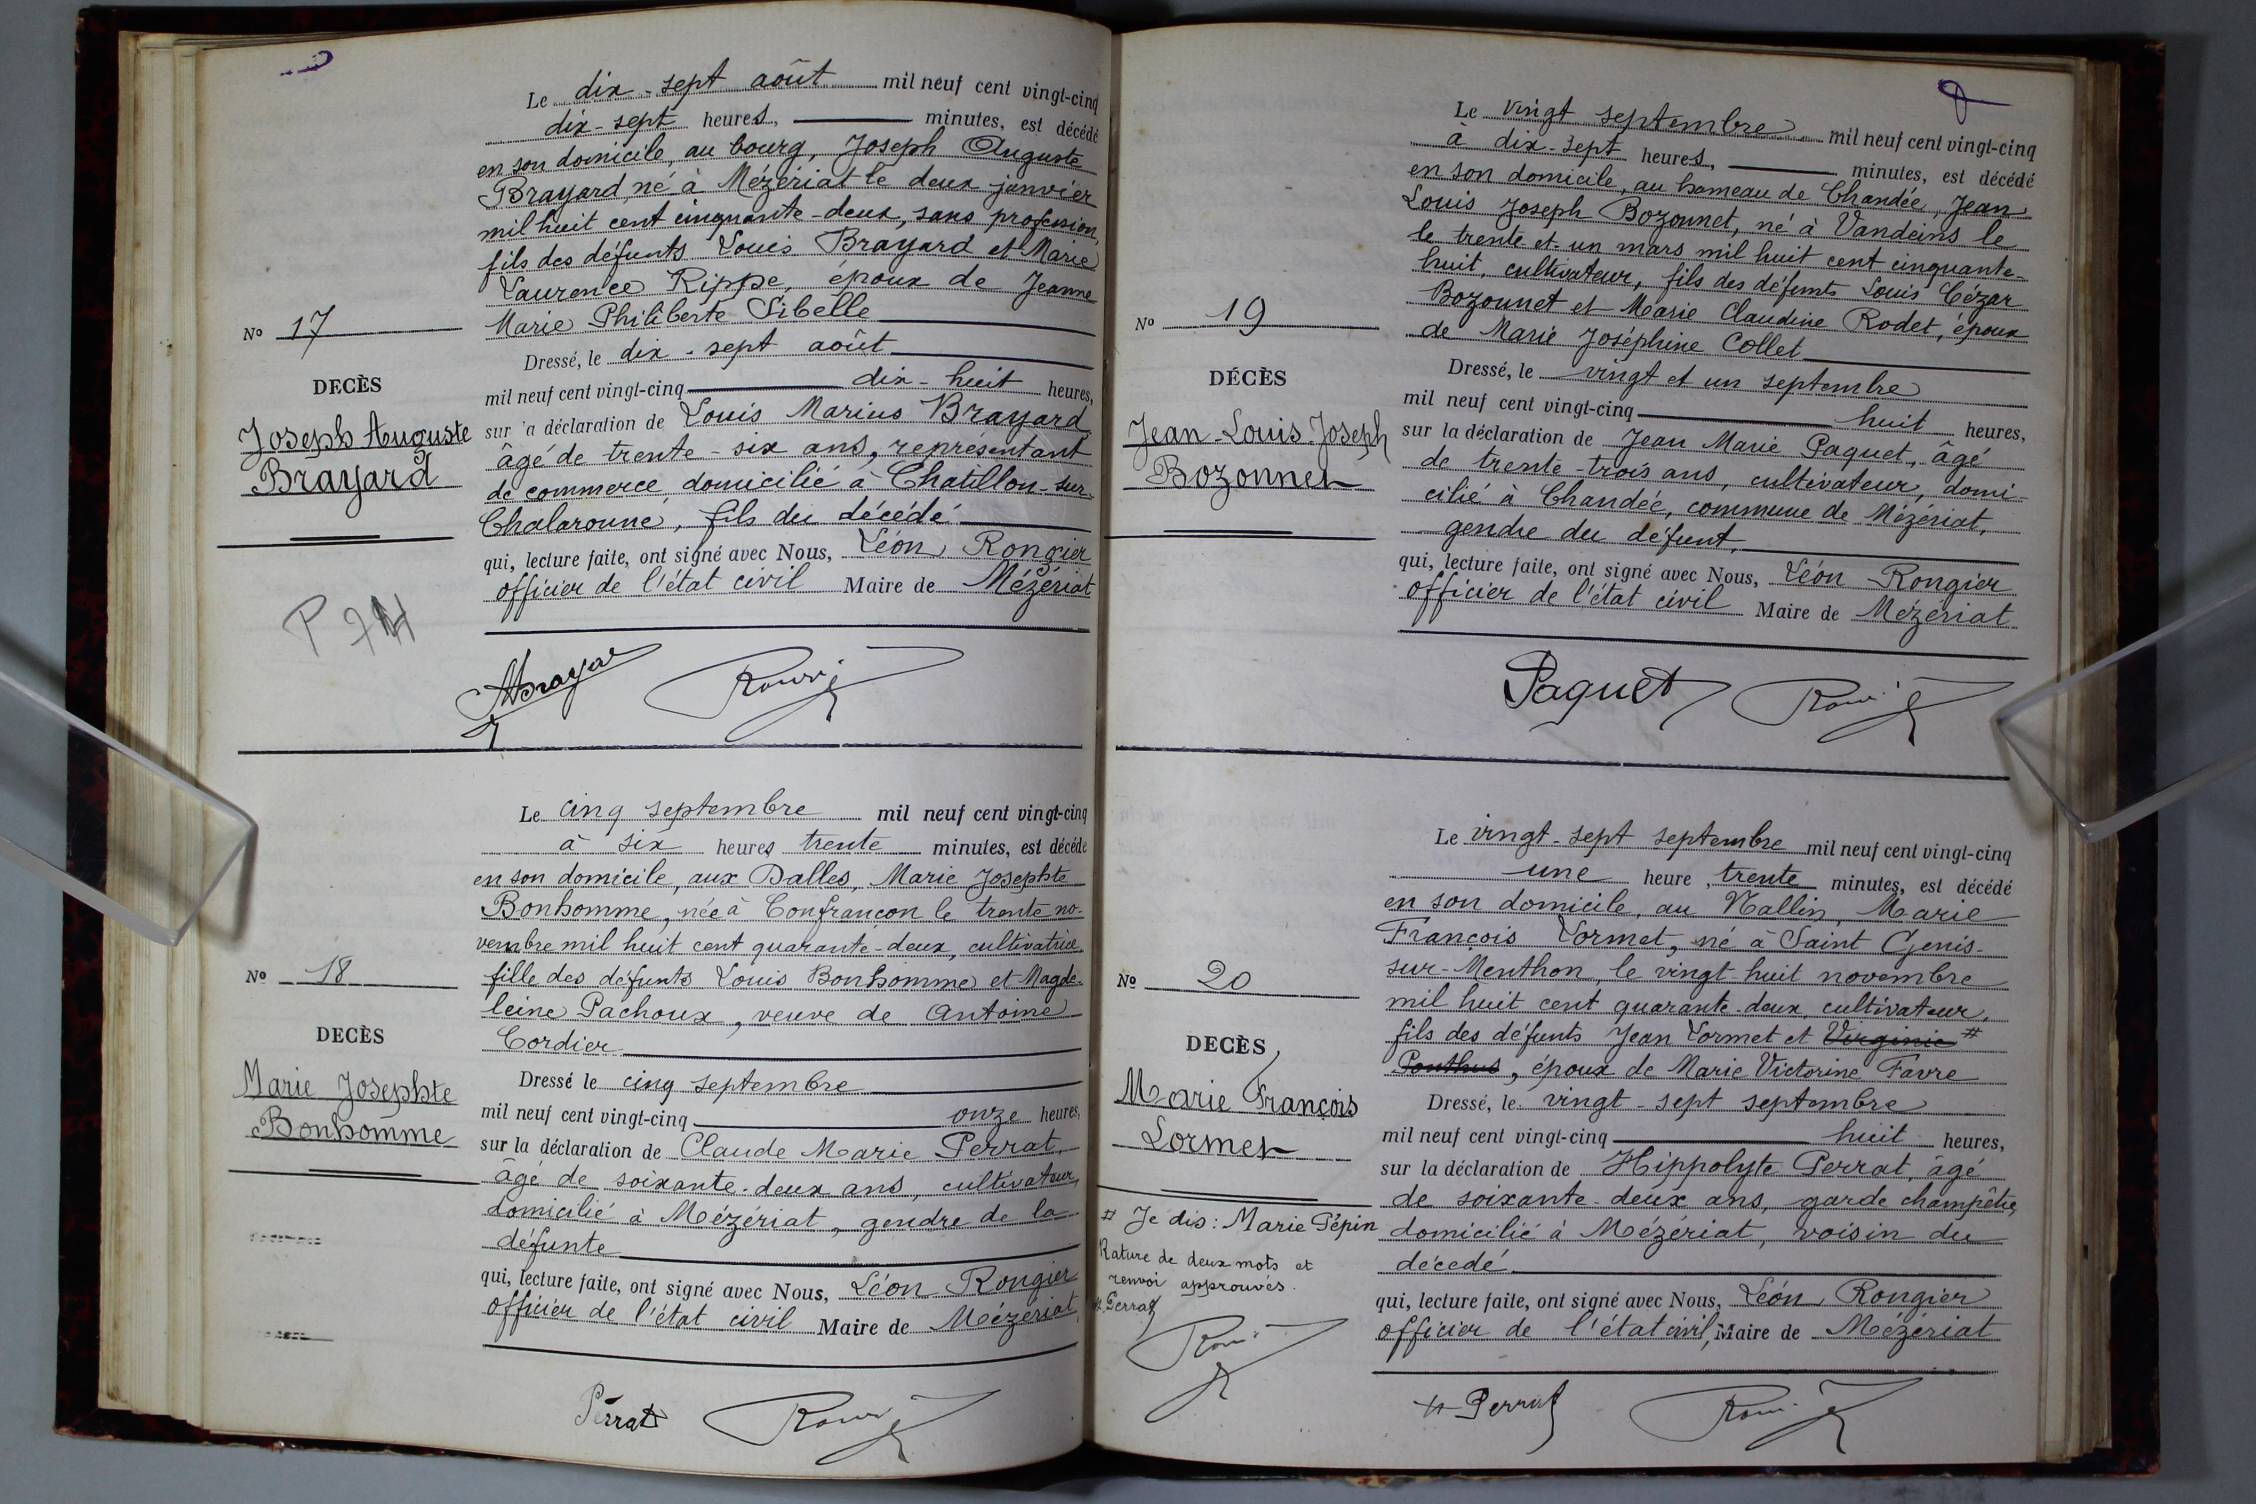 Le dix-sept août mil neuf cent vingt-cinq
dix-sept heures, minutes, est décédé
en son domicile, au bourg, Joseph Auguste
Brayard, né à Mézériat le deux janvier
mil huit cent cinquante-deux, sans profession,
fils des défunts Louis Brayard et Marie
Laurence Rippe, époux de Jeanne
Marie Philiberte Sibelle
Dressé, le dix-sept août
mil neuf cent vingt-cinq dix-huit heures,
sur a déclaration de Louis Marius Brayard
âgé de trente-six ans, représentant
de commerce domicilié à Chatillon-sur-
Chalaronne, fils du décédé
qui, lecture faite, ont signé avec Nous, Léon Rongier
officier de l'état civil Maire de Mézériat
No 17
DECÈS
Joseph Auguste
Brayard
P
Le cinq septembre mil neuf cent vingt-cinq
à six heures trente minutes, est décédé
en son domicile, aux Dalles, Marie Josephte
Bonhomme, née à Confrançon le trente no-
vembre mil huit cent quarante-deux, cultivatrice
fille des défunts Louis Bonhomme et Magde-
leine Pachoux, veuve de Antoine
Cordier
Dressé le cinq septembre
mil neuf cent vingt-cinq onze heures,
sur la déclaration de Claude Marie Perrat,
âgé de soixante-deux ans, cultivateur,
domicilié à Mézériat, gendre de la
défunte
qui, lecture faite, ont signé avec Nous, Léon Rongier
officier de l'état civil Maire de Mézériat
No 18
DECÈS
Marie Josephte
Bonhomme
Perrat
Le vingt septembre mil neuf cent vingt-cinq
à dix-sept heures, minutes, est décédé
en son domicile, au hameau de Chandée, Jean
Louis Joseph Bozonnet, né à Vandeins le
le trente et un mars mil huit cent cinquante-
huit, cultivateur, fils des défunts Louis Cézar
Bozonnet et Marie Claudine Rodet, époux
de Marie Joséphine Collet
Dressé, le vingt et un septembre
mil neuf cent vingt-cinq huit heures,
sur la déclaration de Jean Marie Paquet, âgé
de trente-trois ans, cultivateur, domi-
cilié à Chandée, commune de Mézériat,
gendre du défunt,
qui, lecture faite, ont signé avec Nous, Léon Rongier
officier de l'état civil Maire de Mézériat
No 19
DÉCÈS
Jean-Louis-Joseph
Bozonnet
Paquet
Le vingt-sept septembre mil neuf cent vingt-cinq
une heure, trente minutes, est décédé
en son domicile, au Nallin, Marie
François Lormet, né à Saint Genis-
sur-Menthon, le vingt-huit novembre
mil huit cent quarante-deux, cultivateur,
fils des défunts Jean Lormet et Virginie #
Ponthus, époux de Marie Victorine Favre
Dressé, le vingt-sept septembre
mil neuf cent vingt-cinq huit heures,
sur la déclaration de Hippolyte Perrat, âgé
de soixante-deux ans, garde champêtre,
domicilié à Mézériat, voisin du
décédé
qui, lecture faite, ont signé avec Nous, Léon Rongier
officier de l'état civil, Maire de Mézériat
No 20
DECÈS
Marie François
Lormet
# Je dis: Marie Pépin
Rature de deux mots et
renvoi approuvés.
H. Perrat
H. Perrat